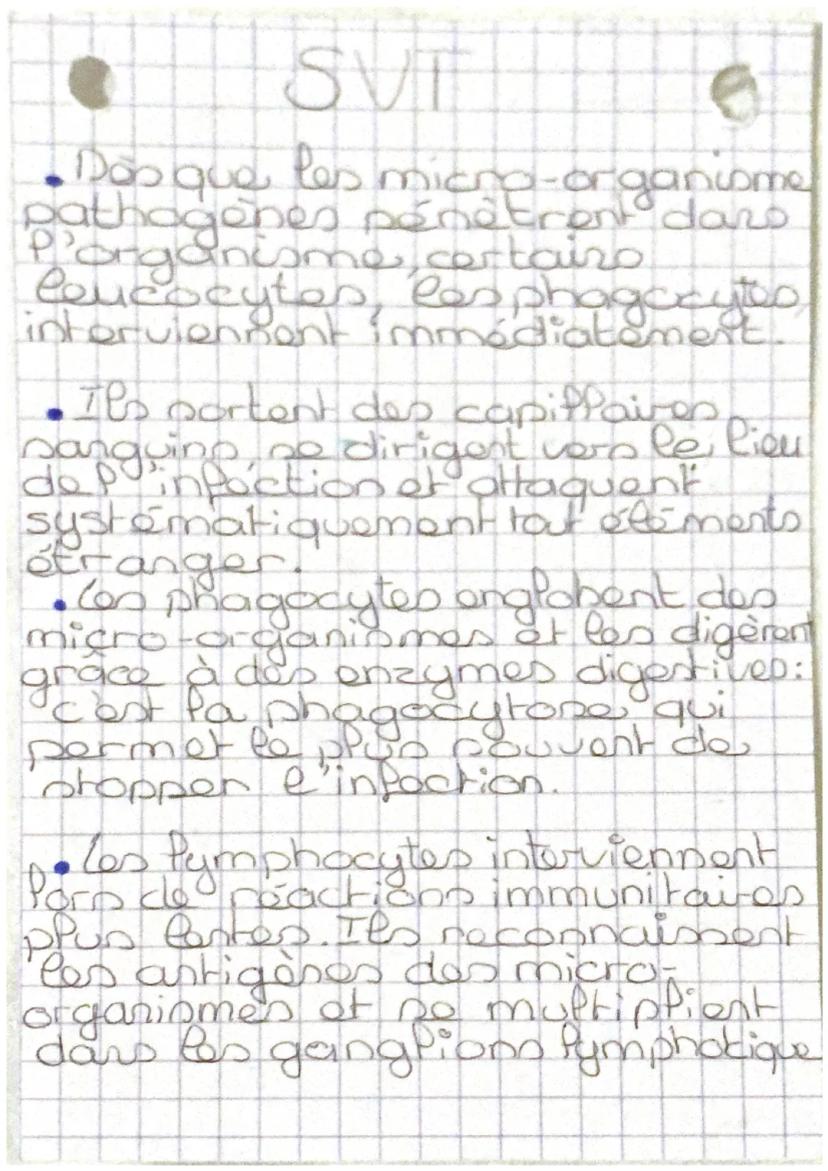 SVT
• Dès que les micro-organisme
pathogènes pénètrent dans
l'organisme, certains
leucocytes, les phagocytes,
interviennent immédiatement.
• Ils sortent des capillaires
sanguins, se dirigent vers le lieu
de l'infection et attaquent
systématiquement tout éléments
étranger.
• Les phagocytes englobent des
micro-organismes et les digèrent
grâce à des enzymes digestives:
c'est la phagocytose qui
permet le plus souvent de
stopper l'infection.
• Les lymphocytes interviennent
lors de réactions immunitaires
plus lentes. Ils reconnaissent
les antigènes des micro-
organismes et se multiplient
dans les ganglions lymphatique